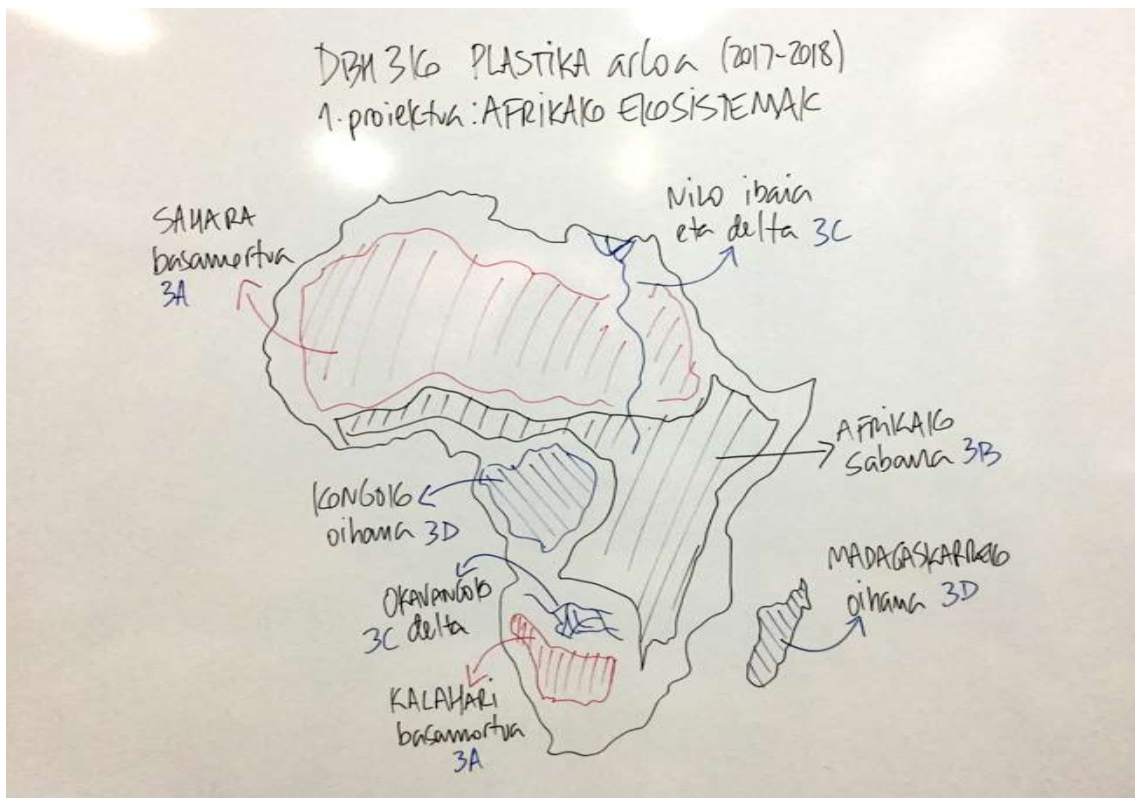 DBH 3ko PLASTIKA arloa (2017-2018)
1. proiektua: AFRIKAKO EKOSISTEMAK
SAHARA
basamortua
3A
NILO ibaia
eta delta 3C
AFRIKAKO
sabana 3B
KONGOKO
oihana 3D
MADAGASKARREKO
oihana 3D
OKAVANGOKO
3C delta
KALAHARI
basamortua
3A